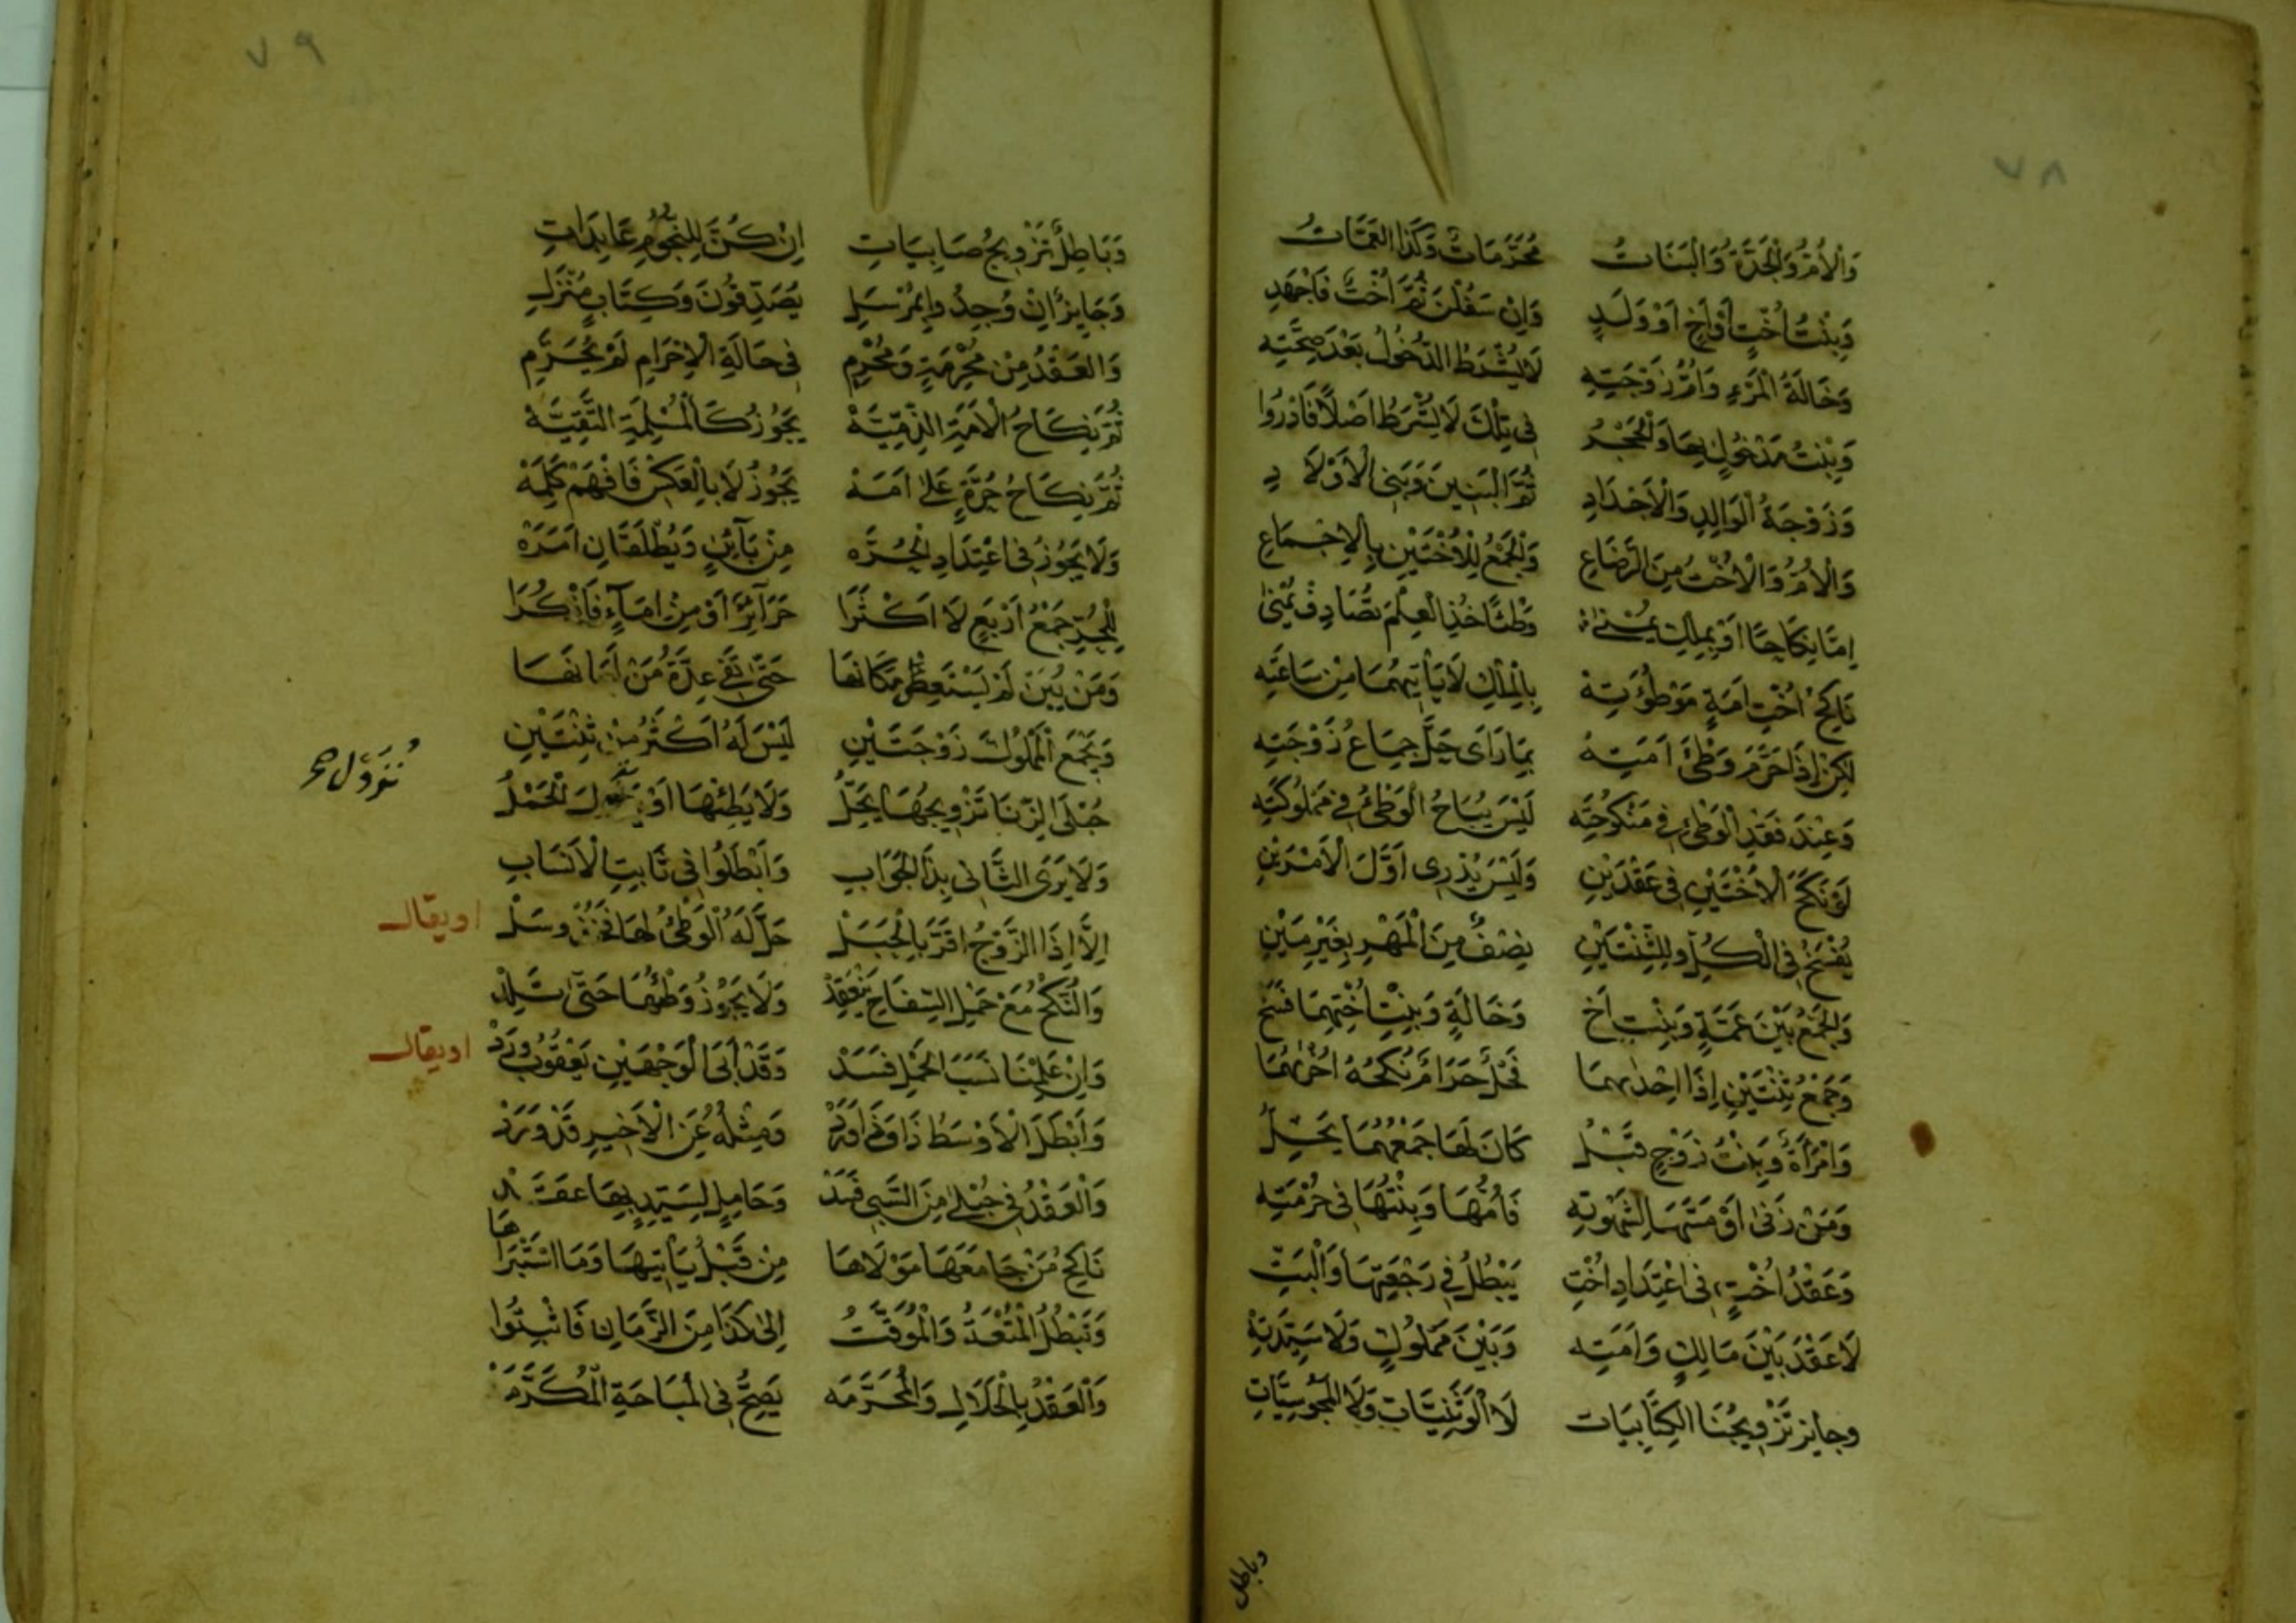 ٧٨
وَالْاُمُّ وَالْجَدَّةُ وَالْبَنَاتُ مُحَرَّمَاتٌ وَكَذَا الْعَمَّاتُ
وَبِنْتُ اُخْتٍ اَوْ اَخٍ اَوْ وَلَدٍ وَاِنْ سَفُلْنَ ثُمَّ اُخْتٌ فَاجْهَدِ
وَخَالَةُ الْمَرْءِ وَاُمُّ زَوْجَتِهِ لَا يُشْرَطُ الدُّخُولُ بَعْدَ صِحَّتِهِ
وَبِنْتُ مَدْخُولٍ بِهَا وَالْحَجْرُ فِى تِلْكَ لَا يُشْرَطُ اَصْلًا فَادْرُوا
وَزَوْجَةُ الْوَالِدِ وَالْاَجْدَادِ ثُمَّ الْبَنِينَ وَبَنِى الْاَوْلَادِ
وَالْاُمُّ وَالْاُخْتُ مِنَ الرَّضَاعِ وَالْجَمْعُ لِلْاُخْتَيْنِ بِالْاِجْمَاعِ
اِمَّا نِكَاحًا اَوْ بِمِلْكِ يُمْنٰى وَطْئًا خُذِ الْعِلْمَ تُصَادِفْ يُمْنٰى
نَاكِحُ اُخْتِ اَمَةٍ مَوْطُوْءَتِهْ بِالْمِلْكِ لَا يَأْتِيهُمَا مِنْ سَاعَتِهِ
لٰكِنْ اِذَا حَرَّمَ وَطْئَ اَمَتِهْ بِمَا رَاَى حَلَّ جِمَاعُ زَوْجَتِهِ
وَعِنْدَ فَقْدِ الْوَطْئِ فِى مَنْكُوحَتِهِ لَيْسَ يُبَاحُ الْوَطْئُ فِى مَمْلُوكَتِهِ
لَوْ نَكَحَ الْاُخْتَيْنِ فِى عَقْدَيْنِ وَلَيْسَ يُدْرٰى اَوَّلُ الْاَمْرَيْنِ
يُفْسَخُ فِى الْكُلِّ وَلِلثِّنْتَيْنِ نِصْفٌ مِنَ الْمَهْرِ بِغَيْرِ مَيْنِ
وَالْجَمْعُ بَيْنَ عَمَّةٍ وَبِنْتِ اَخْ وَخَالَةٍ وَبِنْتِ اُخْتِهِمَا فَسَخْ
وَجَمْعُ ثِنْتَيْنِ اِذَا اِحْدٰيهُمَا فَحْلٌ حَرَامٌ نُكْحُهُ اُخْرٰيهُمَا
وَامْرَأَةٌ وَبِنْتُ زَوْجٍ قَبْلُ كَانَ لَهَا جَمْعُهُمَا يَحِلُّ
وَمَنْ زَنٰى اَوْ مَسَّهَا لِشَهْوَتِهِ فَاُمُّهَا وَبِنْتُهَا فِى حُرْمَتِهِ
وَعَقْدُ اُخْتٍ فِى اعْتِدَادِ اُخْتِ يَبْطُلُ فِى رَجْعَتِهَا وَالْبَتِّ
لَا عَقْدَ بَيْنَ مَالِكٍ وَاَمَتِهِ وَبَيْنَ مَمْلُوكٍ وَلَا سَيِّدَتِهْ
وجايز تَزْوِيجُنَا الْكِتَابِيَات لَا الْوَثَنِيَّاتِ وَلَا الْمَجُوسِيَّاتِ
وباطل
٧٩
وَبَاطِلٌ تَزْوِيجُ صَابِيَاتِ اِنْ كُنَّ لِلنُّجُومِ عَابِدَاتِ
وَجَايِزٌ اِنْ وُجِدُوا بِمُرْسَلِ يُصَدِّقُونَ وَكِتَابٍ مُنْزَلِ
وَالعَقْدُ مِنْ مُحْرِمَةٍ وَمُحْرِمِ فِى حَالَةِ الْاِحْرَامِ لَمْ يُحَرَّمِ
ثُمَّ نِكَاحُ الْاَمَةِ الذِّمِّيَّةْ يَجُوزُ كَالْمُسْلِمَةِ التَّقِيَّةْ
ثُمَّ نِكَاحُ حُرَّةٍ عَلٰى اَمَهْ يَجُوزُ لَا بِالْعَكْسِ فَافْهَمْ كَلِمَهْ
وَلَا يَجُوزُ فِى اعْتِدَادِ الْحُرَّه مِنْ بَآئِنٍ وَيُطْلَقَانِ اَمَرَّهْ
لِلْحُرِّ جَمْعُ اَرْبَعٍ لَا اَكْثَرَا حَرَآئِرَ اَوْ مِنْ اِمَآءٍ فَاذْكُرَا
وَمَنْ يُبِنْ لَمْ يَسْتَعِضْ مَكَانَهَا حَتّٰى تَفِى عِدَّةُ مَنْ اَبَانَهَا
وَيَجْمَعُ الْمَمْلُوكُ زَوْجَتَيْنِ لَيْسَ لَهُ اَكْثَرُ مِنْ ثِنْتَيْنِ
حُبْلَى الزِّنَا تَزْوِيجُهَا يَحِلُّ وَلَا يَطِئْهَا اَوْ يَزُولَ الْحَمْلُ
وَلَا يَرَى الثَّانِى بِذَا الْجَوَابِ وَاَبْطَلُوا فِى ثَابِتِ الْاَنْسَابِ
اِلَّا اِذَا الزَّوْجُ اَقَرَّ بِالْحَبَلْ حَلَّ لَهُ الْوَطْئُ لَهَا وَسَلْ
اويقال
وَالنُّكْحُ مَعْ حَمْلِ السِّفَاحِ يَنْعَقِدْ وَلَا يَجُوْزُ وَطْئُهَا حَتّٰى تَلِدْ
وَاِنْ عَلِمْنَا نَسَبَ الْحَمْلِ فَسَدْ وَقَدْ اَبَى الْوَجْهَيْنِ يَعْقُوبُ وَرَدْ
اويقال
وَاَبْطَلَ الْاَوْسَطُ ذَا وَمِثْلُهُ عَنِ الْاَخِيرِ قَدْ وَرَدْ
وَالْعَقْدُ فِى حُبْلٰى مِنَ السَّبْىِ فَسَدْ وَحَامِلٍ لِسَيِّدٍ بِهَا عَقَدْ
نَاكِحُ مَنْ جَامَعَهَا مَوْلَاهَا مِنْ قَبْلُ يَأْتِيهَا وَمَا اسْتَبْرَاهَا
وَتَبْطُلُ الْمُتْعَةُ وَالْمُوَقَّتُ اِلٰى كَذَا مِنَ الزَّمَانِ فَاثْبِتُوا
وَالْعَقْدُ بِالْحَلَالِ وَالْمُحَرَّمَه يَصِحُّ فِى الْمُبَاحَةِ الْمُكَرَّمَهْ